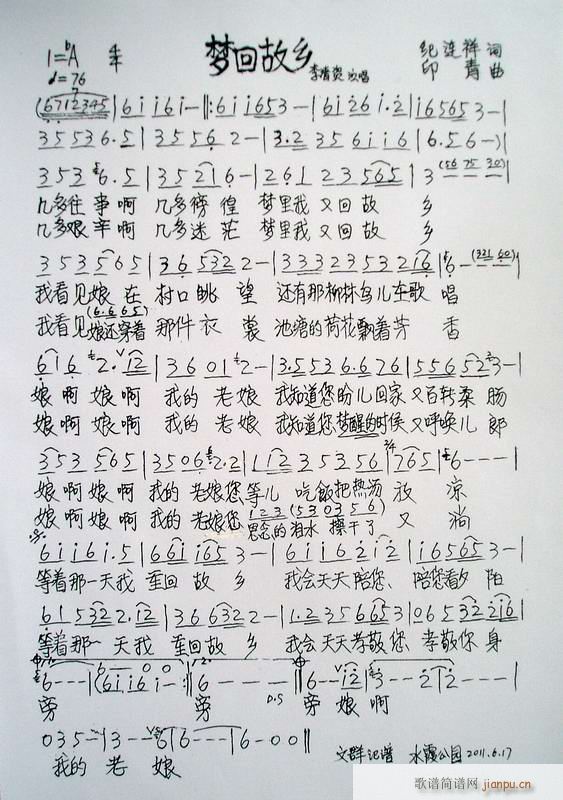 梦回故乡
1=ᵇA 4/4
♩=76
李肖爽 演唱
纪连祥 词
印青 曲
(6712345|6i i6i-‖:6i i653-|6i26i·2|i65653-|
35536.5|35562-|3.2356ii6|6.56-)|
3536.5|35216-|26123565|3(567530)|
几多往事啊 几多徬徨 梦里我又回故 乡
几多艰辛啊 几多迷茫 梦里我又回故 乡
353565|365322-|3332353216|6-(32160)|
我看见娘在 村口眺望 还有那柳林鸟儿在歌 唱
(6.665)
我看见娘还穿着 那件衣裳 池塘的荷花飘着芳 香
6162.12|36012-|3.5536.676|556523-|
娘啊娘啊 我的老娘 我知道您盼儿回家又百转柔肠
娘啊娘啊 我的老娘 我知道您梦醒的时候又呼唤儿郎
353565|35062.2|112353556|765|6---|
娘啊娘啊 我的老娘您等儿 吃飯把热汤 放 凉
123(530356)
娘啊娘啊 我的老娘您思念的泪水 擦干了 又 淌
6ii6i.5|66ii653-|6ii62i2|i65653-|
等着那一天我 重回故乡 我会天天陪您、陪您看夕阳
615322.12|366322-|1.2356653|06532216|
等着那一天我 重回故乡 我会天天孝敬您 孝敬你身
6---|(6ii6i-:‖6---‖6--i2|3--2|2---|
旁 旁 D.S 旁 娘啊
035-|3--6|6---|6-00‖
我的老娘
文群记谱 水霞公园2011.6.17
歌谱简谱网
jianpu.cn